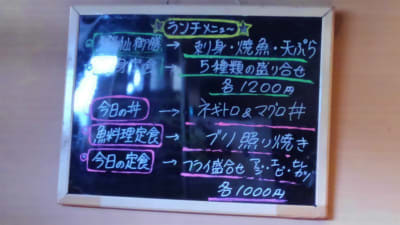 ランチメニュー
→ 刺身・焼魚・天ぷら
→ 5種類の盛り合せ
各1200円
今日の丼 → ネギトロ&マグロ丼
魚料理定食 → ブリ照り焼き
今日の定食 → フライ盛合せ アジ・エビ・ヒレカツ
各1000円